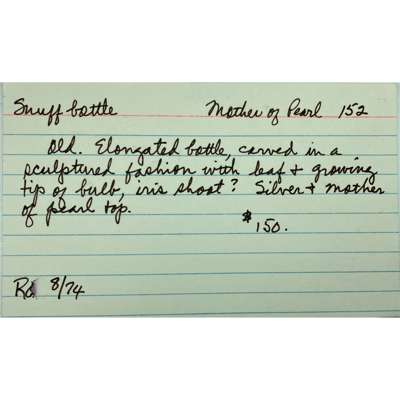 Snuff bottle Mother of Pearl 152
Old. Elongated bottle, carved in a
sculptured fashion with leaf + growing
tip of bulb, iris shoot? Silver + mother
of pearl top.
$150.
8/74